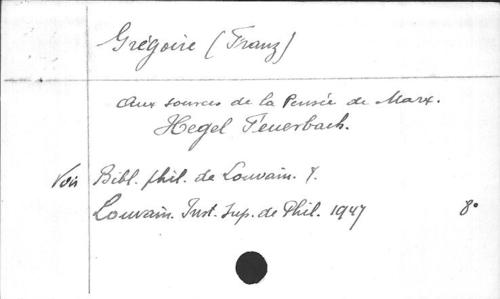 Grégoire (Franz)
Aux sources de la Pensée de Marx.
Hegel Feuerbach.
Voir Bibl. phil. de Louvain. 7.
Louvain. Inst. Sup. de Phil. 1947 8°